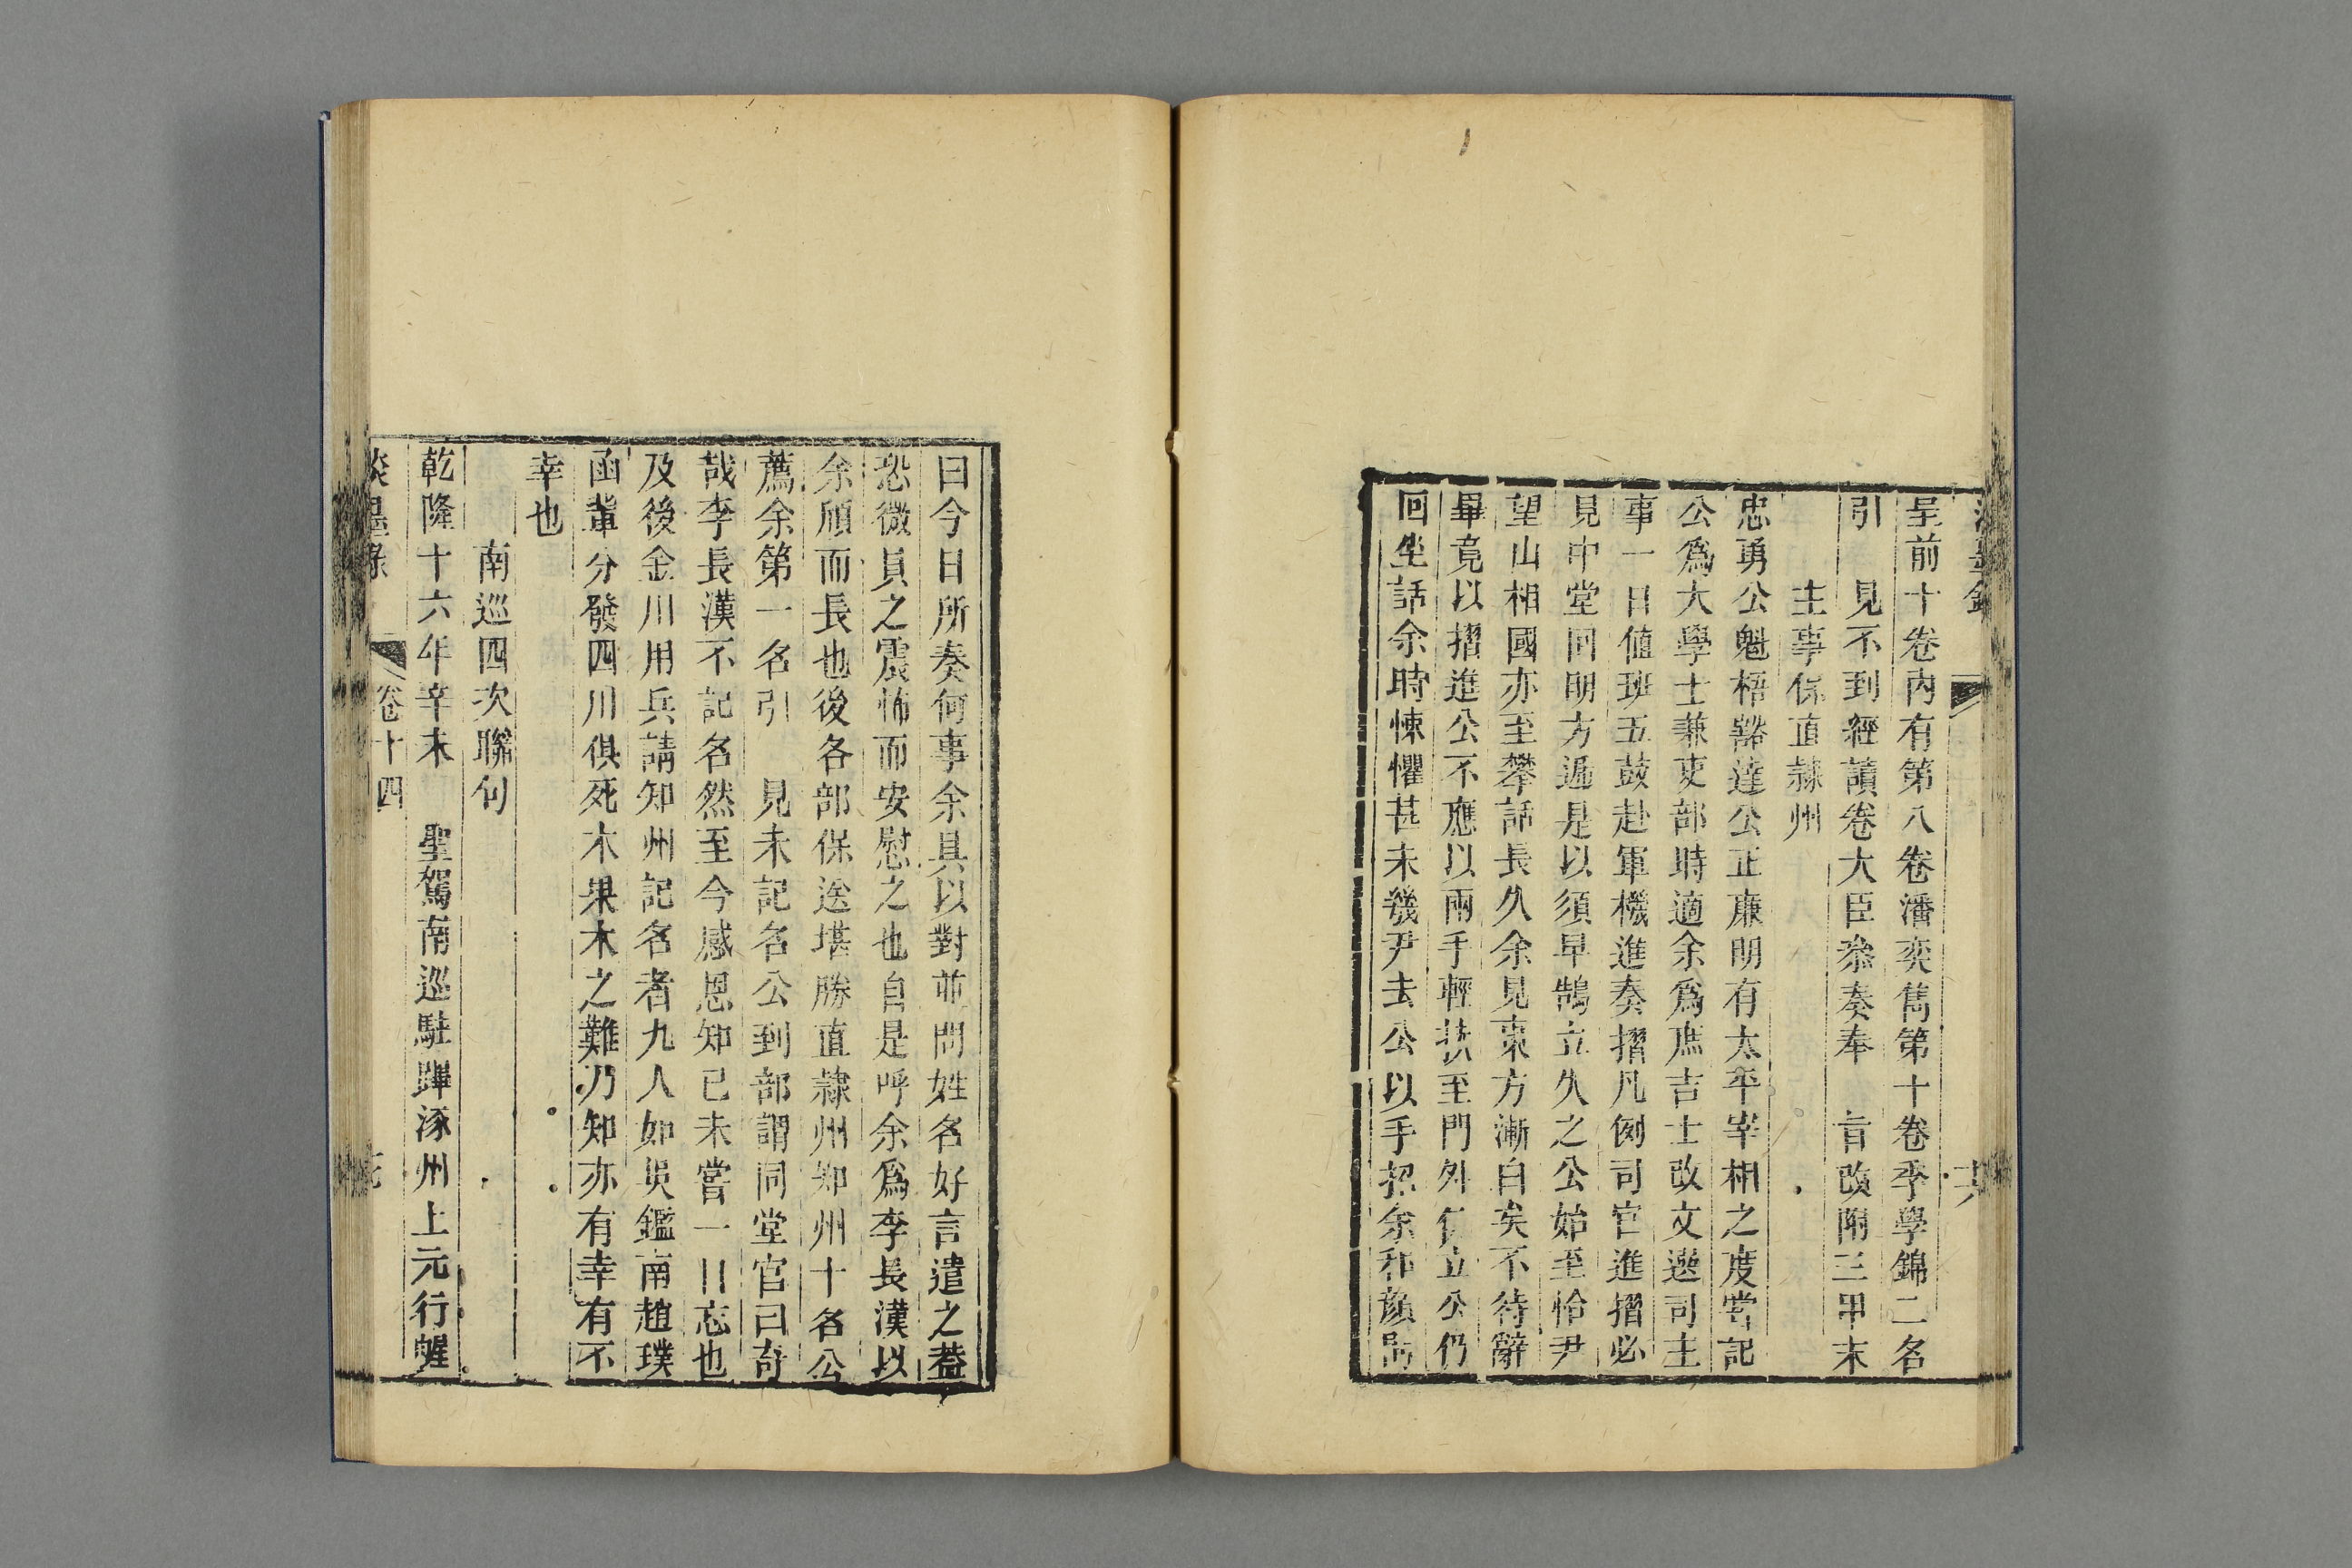 呈前十卷內有第八卷潘奕雋第十卷季學錦二名
引　見不到經讀卷大臣叅奏奉　旨改附三甲末
主事保直隷州
忠勇公魁梧豁達公正廉明有太平宰相之度嘗記
公爲大學士兼吏部時適余爲庶吉士改文選司主
事一日値班五鼓赴軍機進奏摺凡例司官進摺必
見中堂回明方遞是以須早鵠立久之公始至恰尹
望山相國亦至攀話長久余見東方漸白矣不待辭
畢竟以摺進公不應以兩手輕扶至門外伫立公仍
回坐話余時悚懼甚未幾尹去公以手招余和顔
曰今日所奏何事余具以對並問姓名好言遣之葢
恐微員之震怖而安慰之也自是呼余爲李長漢以
余頎而長也後各部保送堪勝直隷州知州十名公
薦余第一名引　見未記名公到部謂同堂官曰奇
哉李長漢不記名然至今感恩知己未嘗一日忘也
及後金川用兵請知州記名者九人如吳鑑南趙璞
函輩分發四川俱死木果木之難乃知亦有幸有不
幸也
南巡四次聯句
乾隆十六年辛未　聖駕南巡駐蹕涿州上元行幄
淡墨錄　卷十四